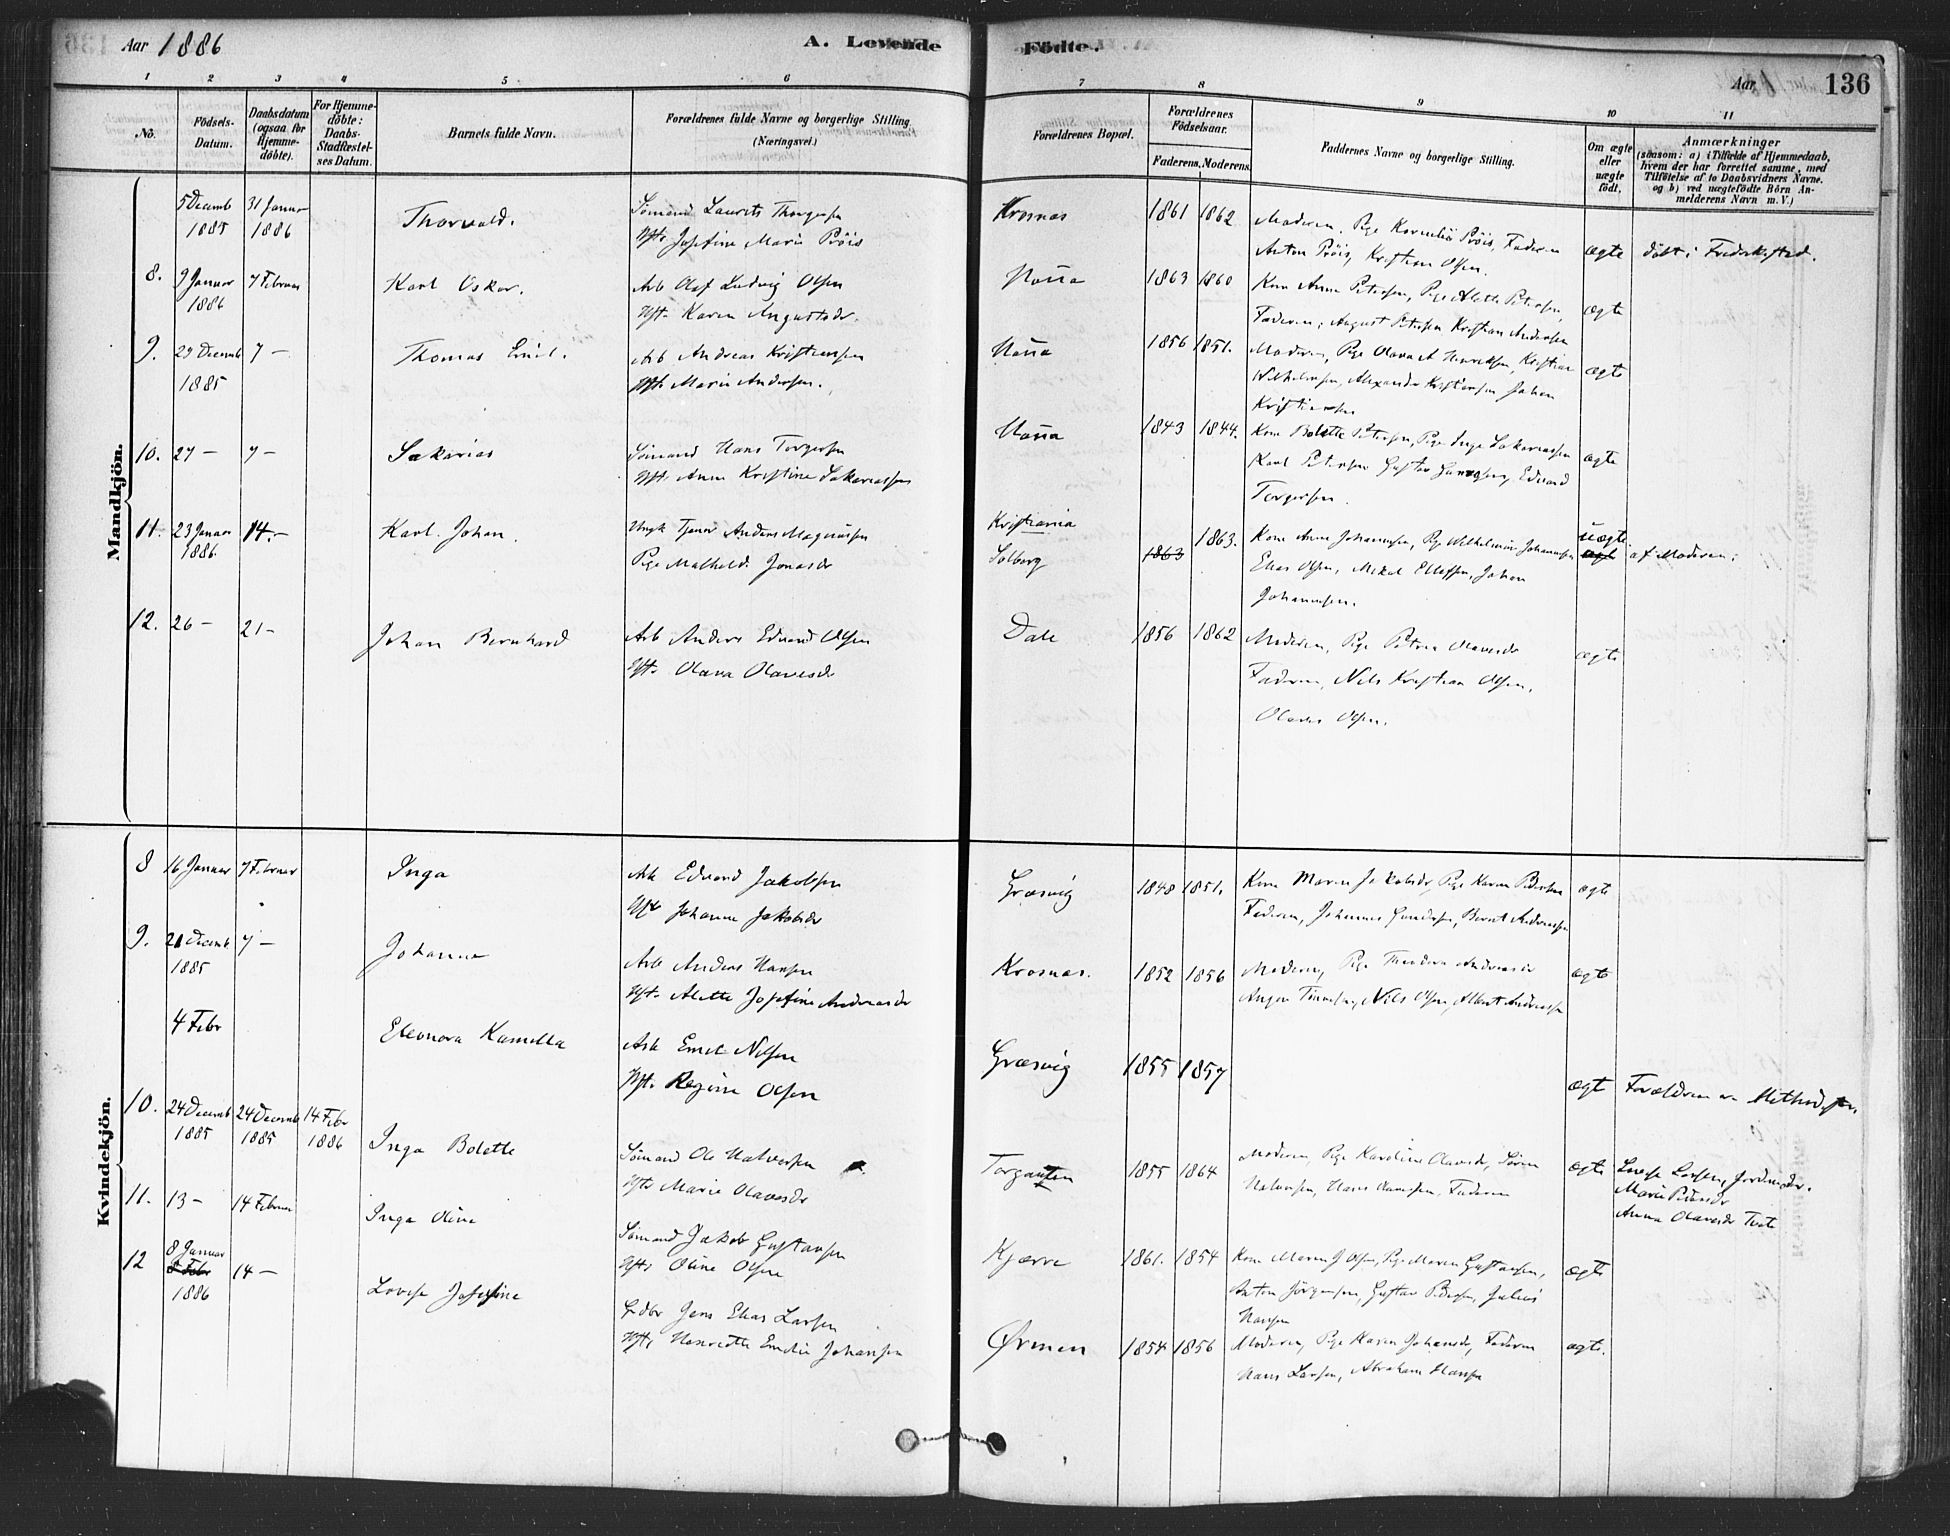 Aar 1886
A. Levende
Födte.
Aar
136
1 2 3 4 5 6 7 8 9 10 11
No.
Födsels-
Datum.
Daabsdatum
(ogsaa for
Hjemme-
döbte).
For Hjemme-
döbte:
Daabs-
Stadfæstel-
ses Datum.
Barnets fulde Navn.
Forældrenes fulde Navne og borgerlige Stilling
(Næringsvei.)
Forældrenes Bopæl.
Forældrenes
Födselsaar.
Faderens. Moderens.
Faddernes Navne og borgerlige Stilling.
Om ægte
eller
uægte
födt.
Anmærkninger
(saasom: a) i Tilfælde af Hjemmedaab,
hvem der har forrettet samme, med
Tilföielse af to Daabsvidners Navne.
og b) ved uægtefödte Börn An-
melderens Navn m. V.)
Mandkjön.
5 Decemb 31 Januar
1885 1886
Thorvald.
Sömand Laurits Thorgersen
Hst. Josefine Marie Pröis
Krosnæs
1861 1862
Moderen, Pige Kornelia Pröis, Faderen
Anton Pröis, Kristian Olsen.
ægte
döbt i Frederikstad.
8. 9 Januar 7 Februar
1886
Karl Oskar.
Arb Olaf Ludvig Olsen
Hst. Karen Augustsdr.
1863 1860
Kone Anne Petersen, Pige Alette Petersen,
Faderen, August Petersen Kristian Andersen
ægte
9. 29 Decemb 7 –
1885
Thomas Emil.
Arb Andreas Kristiansen
Hst. Marie Andersen.
1856 1851.
Moderen, Pige Olava A Henriksen, Kristian
Vilhelmsen, Alexander Kristiansen Johan
Kristiansen
ægte
10. 27 – 7 –
Sakarias
Sömand Hans Torgersen
Hst. Anne Kristine Sakariassen
1843 1844.
Kone Bolette Petersen, Pige Inga Sakariassen
Karl Petersen Gustav Edvard
Torgersen.
ægte
11. 23 Januar 14. –
1886
Karl Johan.
Ungk Tjener Anders Magnussen
Pige Mathilde Jonasdr
Kristiania
Solberg
1863 1863.
Kone Anne Johannesen, Pige Wilhelmine Johannesen
Elias Olsen, Mikal Ellefsen, Johan
Johannesen.
uægte
ægte
af Moderen.
12. 26 – 21 –
Johan Bernhard
Arb Anders Edvard Olsen
Hst. Olava Olavesdr
Dale
1856 1862
Moderen, Pige Petrea Olavesdr
Faderen, Nils Kristian Olsen,
Olaves Olsen.
ægte
Kvindekjön.
8 16 Januar 7 Februar
Inga
Arb Edvard Jakobsen
Hst Johanne Jakobsdr
Græsvig
1848 1851.
Kone Maren Jakobsdr, Pige Karen Pedersen
Faderen, Johannes Gundersen, Bernt Andreassen
ægte
9. 21 Decemb 7 –
1885
Johanne
Arb Anders Hansen
Hst. Alette Josefine Andreasdr
Krosnæs.
1852 1856
Moderen, Pige Theodora Andreasdr
Nils Olsen, Albert Andreassen
ægte
4 Febr
Eleonora Kamilla
Arb Emil Nilsen
Hst. Regine Olsen
Græsvig
1855 1857
ægte
Forældrene ere Methodister.
10. 24 Decemb 24 Decemb 14 Febr
1885 1885 1886
Inga Bolette
Sömand Ole Halvorsen
Hst. Marie Olavesdr
Torgauten
1855 1864
Moderen, Pige Karoline Olavesdr, Sören
Halvorsen, Hans Faderen
ægte
Lovise Larsen, Jordmoder.
Marie Pedersdr
Anna Olavesdr
11. 13 – 14 Februar
Inga Oline
Sömand Jakob Gustavsen
Hst. Oline Olsen
Kjærre
1861. 1854
Kone Maren J Olsen, Pige Maren Gustavsen,
Anton Jörgensen, Gustav Pedersen, Julius
Hansen
ægte
12 8 Januar 14 –
8 Febr
1886
Lovise Josefine
Grdbr Jens Elias Larsen
Hst. Henriette Emilie Johansen
Ørmen
1854 1856
Moderen, Pige Karen Johansdr, Faderen
Hans Larsen, Abraham Hansen
ægte.